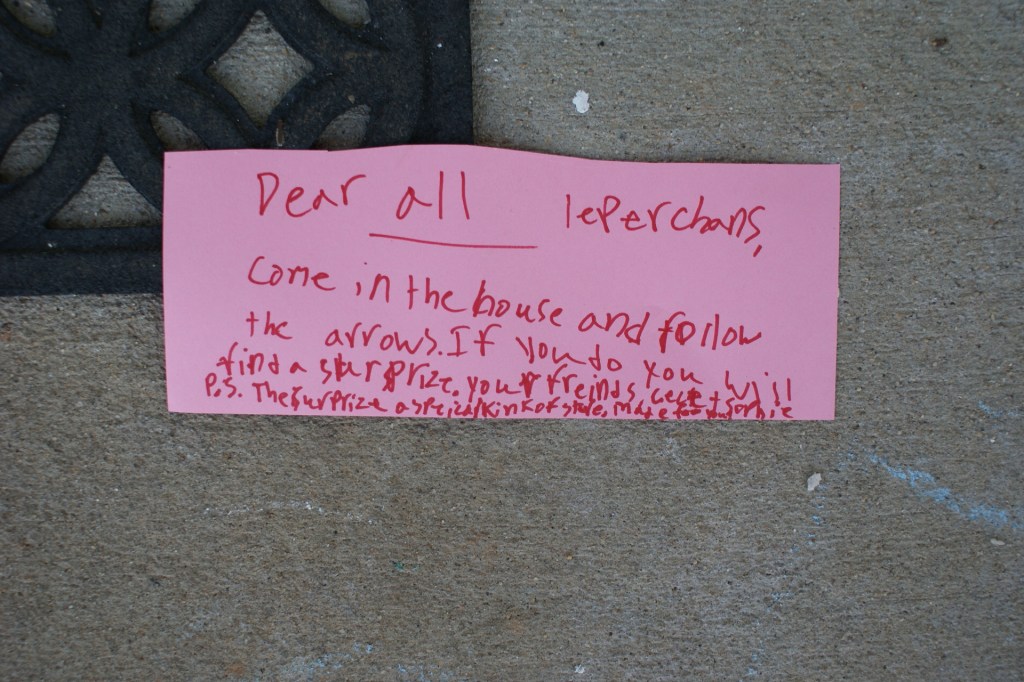 Dear all leperchans,
Come in the house and follow
the arrows. If you do you will
find a surprize. your freinds, + Sophie
P.S. The surprize a speical kink of made for you